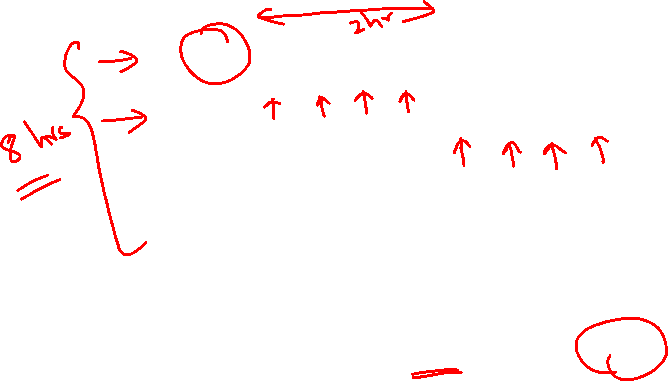 2hr
8 hrs